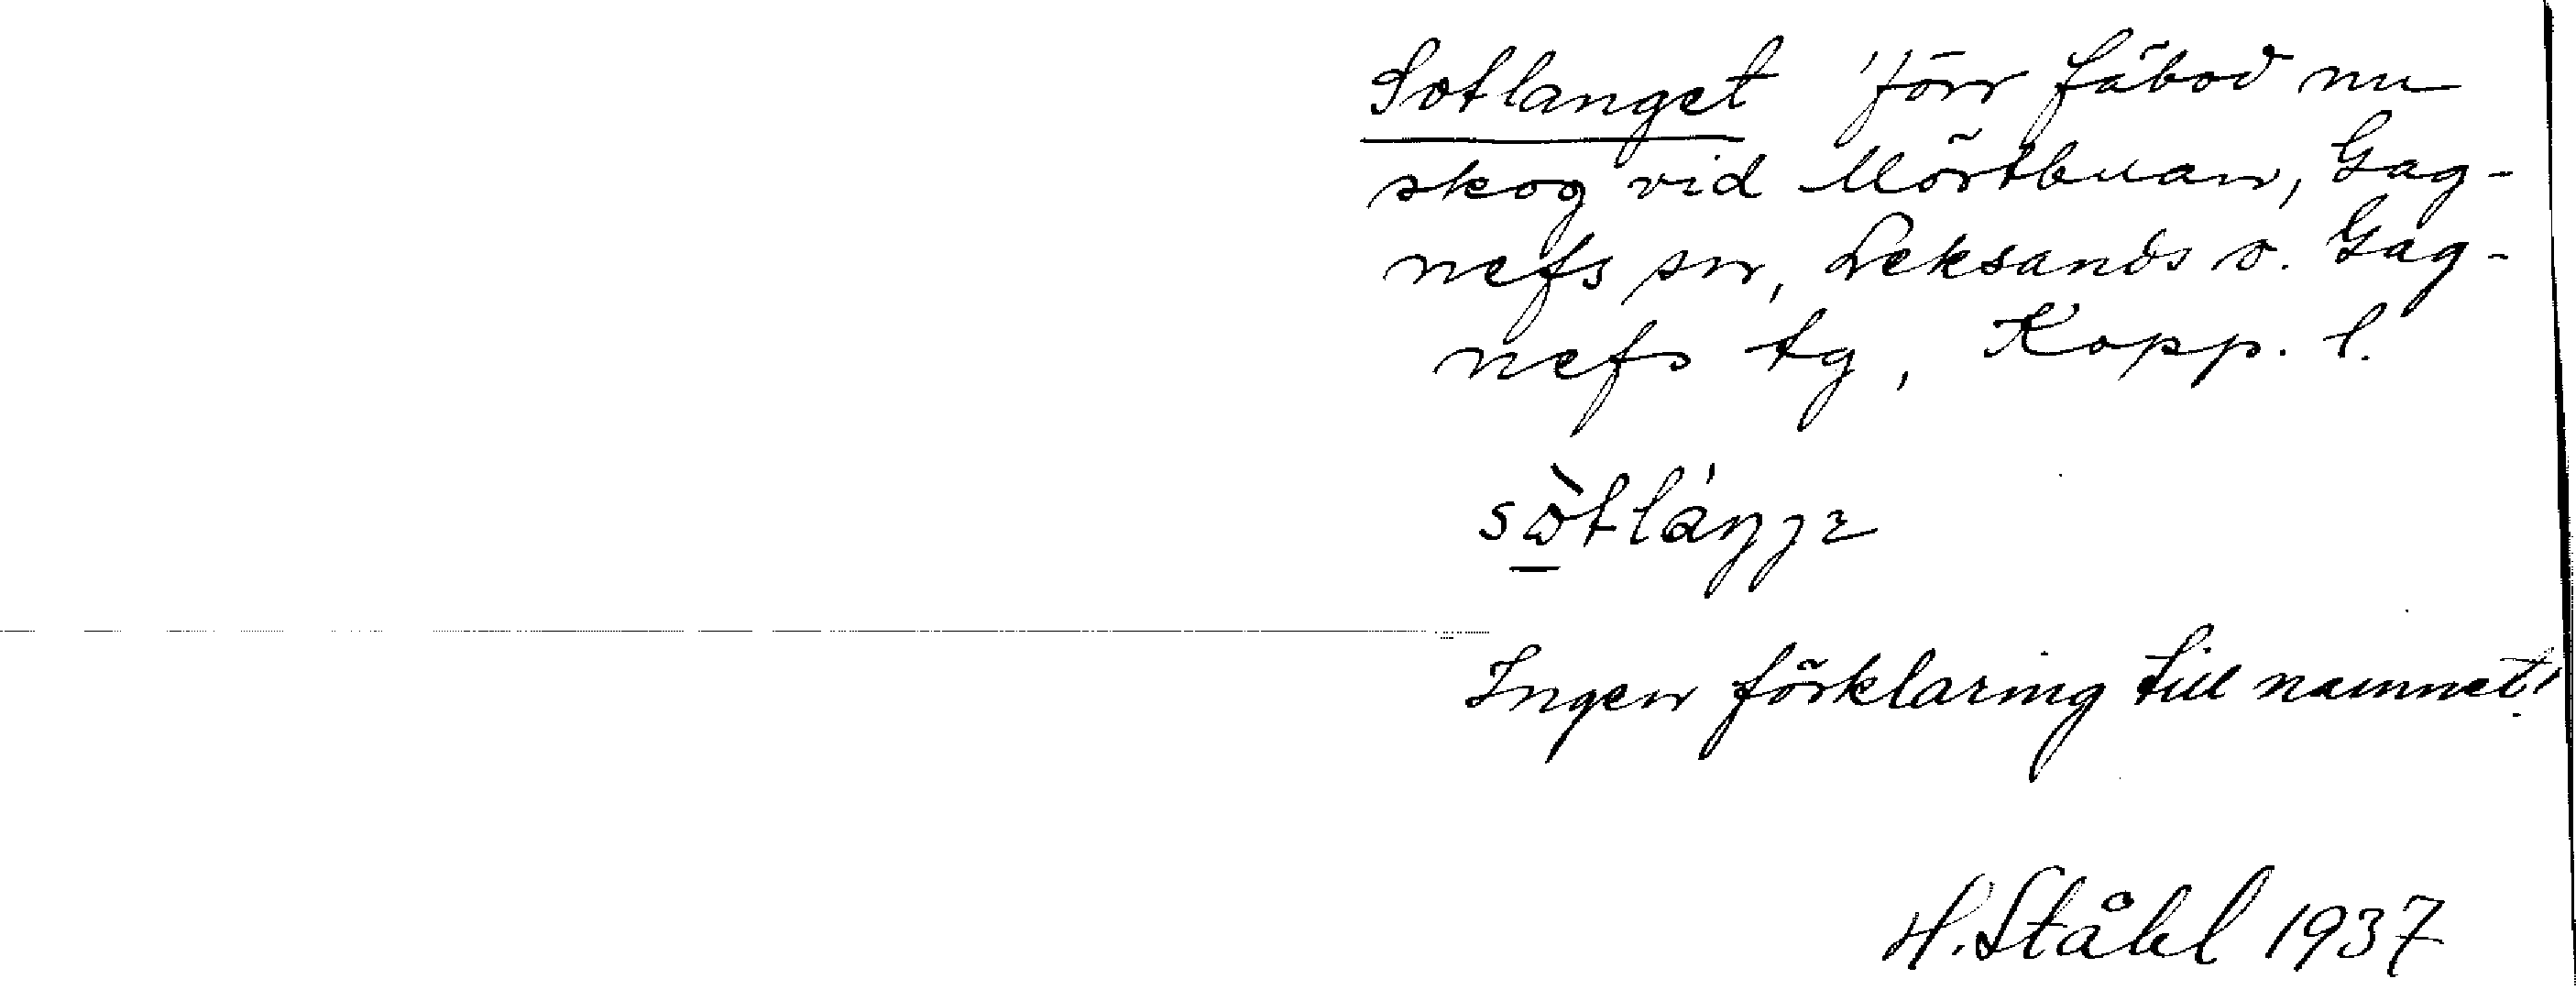 Sotlanget 'förr fäbod nu
skog vid Mörtbuan, Gag-
nefs sn, Leksands o. Gag-
nefs tg, Kopp. l.
Ingen förklaring till namnet!
H. Ståhl 1937